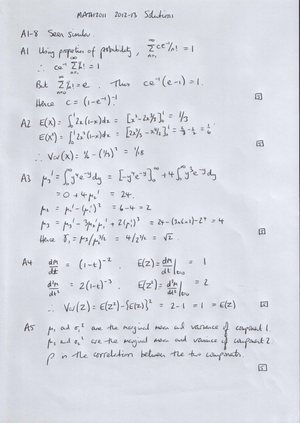 MATH2011 2012-13 Solutions
A1-8 Seen similar
A1 Using properties of probability, ∑ ce⁻¹/n! = 1
∴ ce⁻¹ ∑ 1/n! = 1
But ∑ 1/n! = e. Thus ce⁻¹(e-1) = 1.
Hence c = (1-e⁻¹)⁻¹.
A2 E(X) = ∫₀¹ 2x(1-x)dx = [x² - 2x³/3]₀¹ = 1/3
E(X²) = ∫₀¹ 2x²(1-x)dx = [2x³/3 - x⁴/2]₀¹ = 2/3 - 1/2 = 1/6
∴ Var(X) = 1/6 - (1/3)² = 1/18
A3 μ₃' = ∫₀^∞ y⁴e⁻ʸdy = [-y⁴e⁻ʸ]₀^∞ + 4∫₀^∞ y³e⁻ʸdy
= 0 + 4μ₂' = 24.
μ₂ = μ₂' - (μ₁')² = 6-4 = 2
μ₃ = μ₃' - 3μ₂'μ₁' + 2(μ₁')³ = 24 - (3×6×2) + 2⁴ = 4
Hence γ₁ = μ₃/μ₂^3/2 = 4/2^3/2 = √2.
A4 dM/dt = (1-t)⁻². E(Z) = dM/dt|t=0 = 1
d²M/dt² = 2(1-t)⁻³. E(Z²) = d²M/dt²|t=0 = 2
∴ Var(Z) = E(Z²) - {E(Z)}² = 2-1 = 1 = E(Z)
A5 μ₁ and σ₁² are the marginal mean and variance of component 1.
μ₂ and σ₂² are the marginal mean and variance of component 2.
ρ is the correlation between the two components.